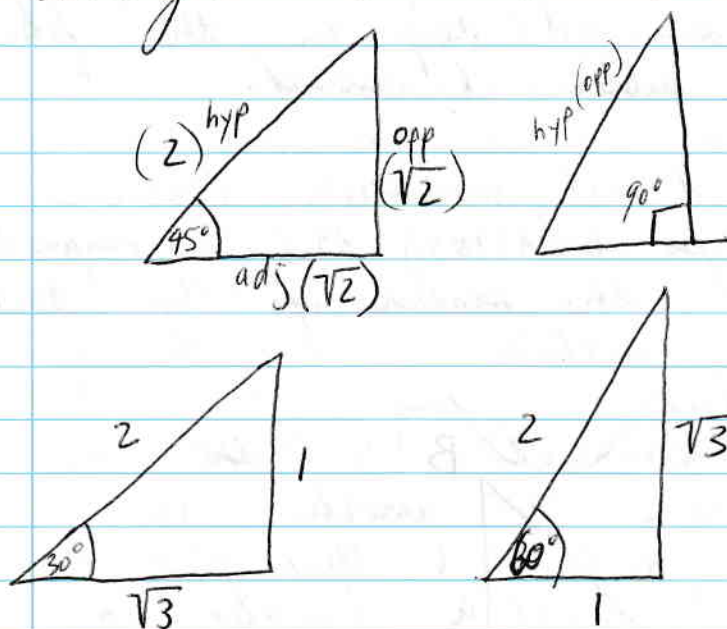 hyp
(2)
opp
(√2)
45°
adj (√2)
hyp (opp)
90°
2
1
30°
√3
2
√3
60°
1